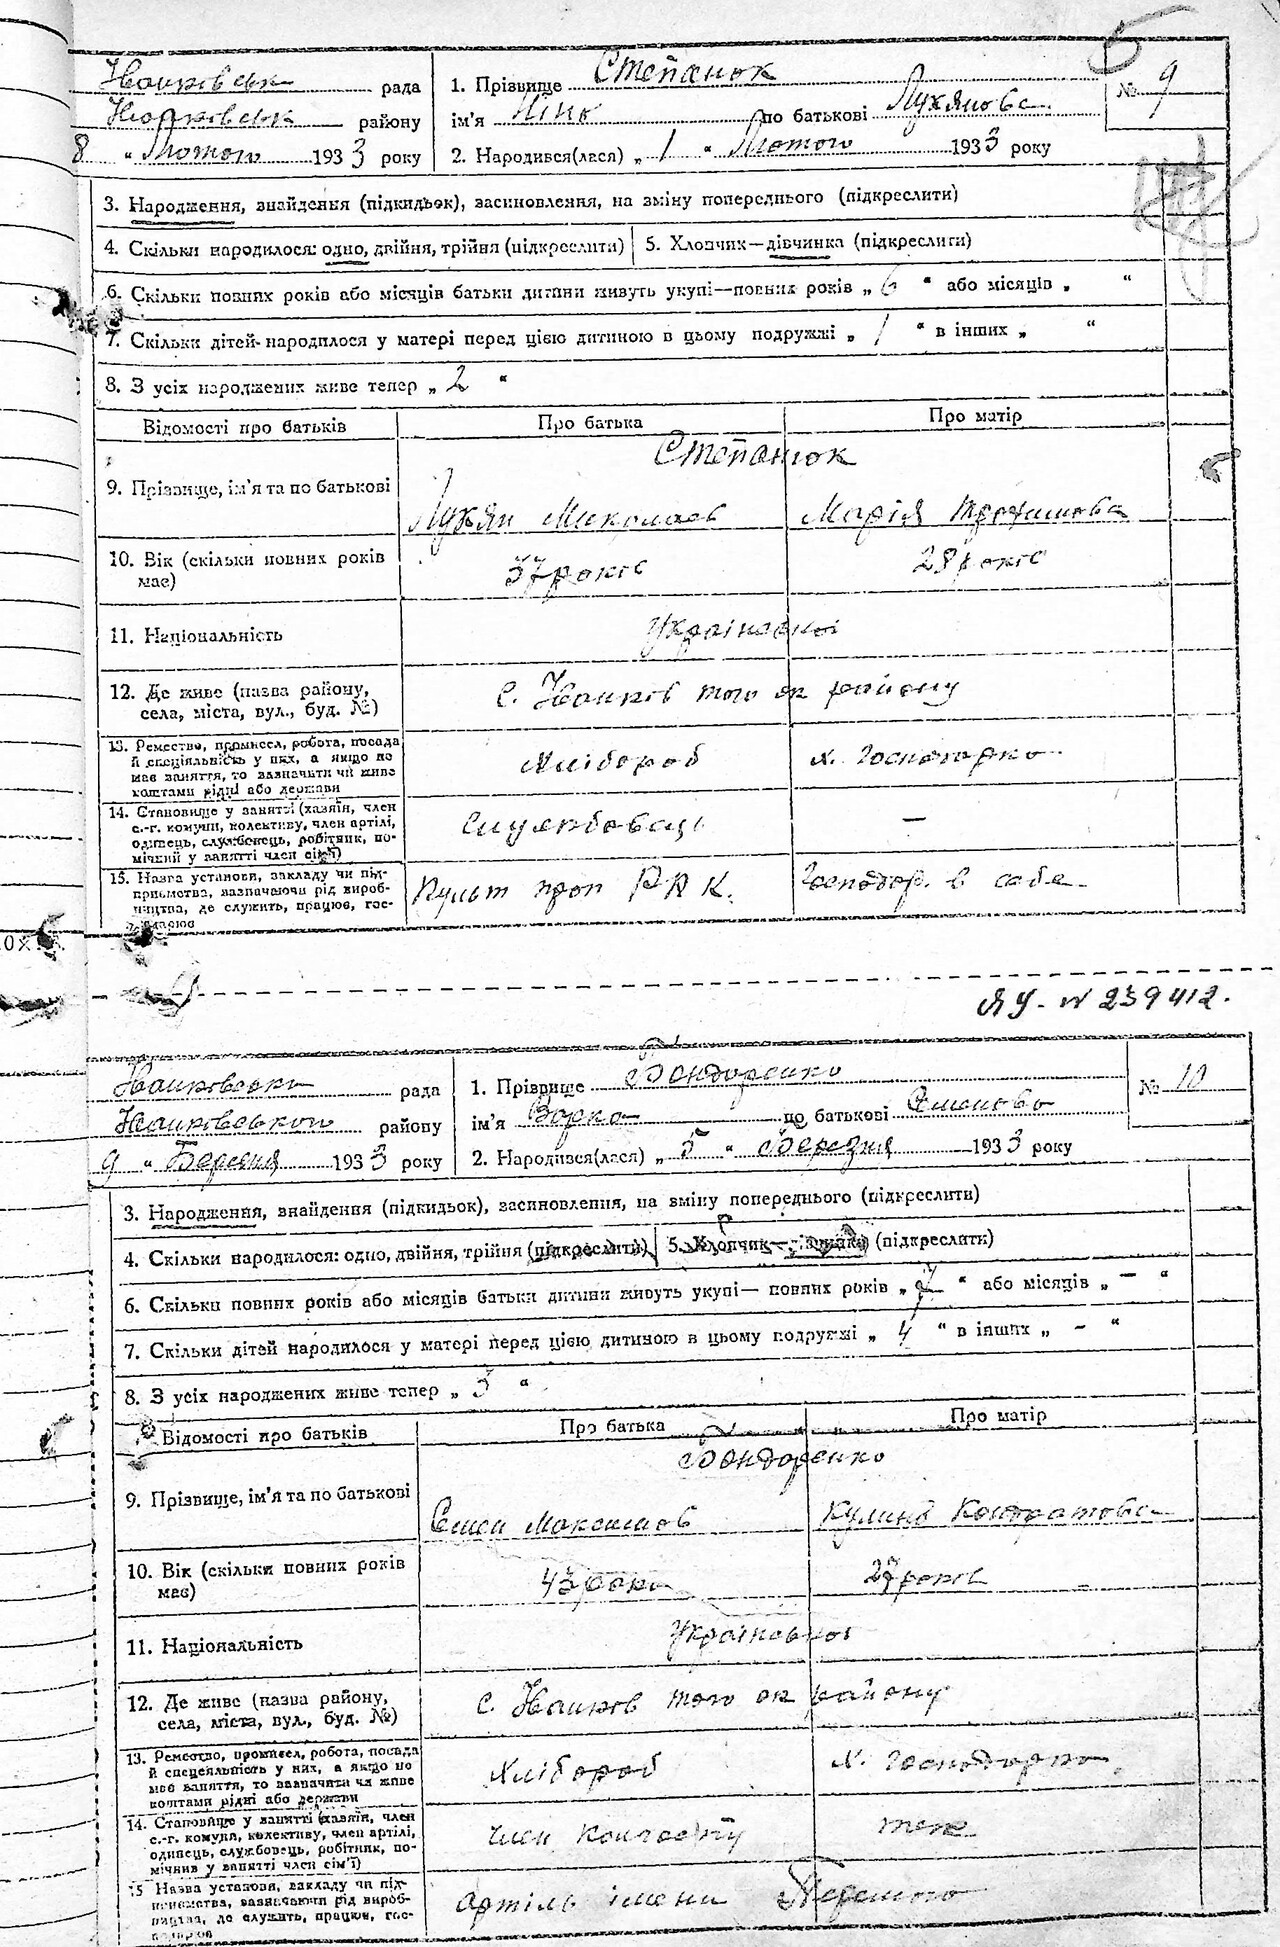 5
рада
району
8 " Лютого 1933 року
1. Прізвище Степанюк
ім'я Ніна по батькові Лукянова
2. Народився(лася) „ 1 " Лютого 1933 року
№ 9
3. Народження, знайдення (підкидьок), засиновлення, на зміну попереднього (підкреслити)
4. Скільки народилося: одно, двійня, трійня (підкреслити) 5. Хлопчик—дівчинка (підкреслити)
6. Скільки повних років або місяців батьки дитини живуть укупі—повних років „ 6 " або місяців „ "
7. Скільки дітей народилося у матері перед цією дитиною в цьому подружжі „ 1 " в інших „ "
8. З усіх народжених живе тепер „ 2 "
Відомості про батьків Про батька Про матір
Степанюк
9. Прізвище, ім'я та по батькові
Лукян Миколаєв Марія Трохимова
10. Вік (скільки повних років
має)
37 років 28 років
11. Національність
12. Де живе (назва району,
села, міста, вул., буд. №)
того ж району
13. Ремество, промисел, робота, посада
й спеціяльність у них, а якщо не
має заняття, то зазначити чи живе
коштами рідні або держави
Хлібороб х. Господарка
14. Становище у занятті (хазяїн, член
с.-г. комуни, колективу, член артілі,
одинець, службовець, робітник, по-
мічний у занятті член сім'ї)
Службовець —
15. Назва установи, закладу чи під-
приємства, зазначаючи рід вироб-
ництва, де служить, працює, гос-
подарює
Культ проп Р П К. Господар. в себе
ЯУ - № 239412.
рада
району
9 " Березня 1933 року
1. Прізвище Бондаренко
ім'я Варка по батькові Семенова
2. Народився(лася) „ 5 " Березня 1933 року
№ 10
3. Народження, знайдення (підкидьок), засиновлення, на зміну попереднього (підкреслити)
4. Скільки народилося: одно, двійня, трійня (підкреслити) 5. Хлопчик—дівчинка (підкреслити)
6. Скільки повних років або місяців батьки дитини живуть укупі— повних років „ 7 " або місяців „ — "
7. Скільки дітей народилося у матері перед цією дитиною в цьому подружжі „ 4 " в інших „ - "
8. З усіх народжених живе тепер „ 3 "
Відомості про батьків Про батька Про матір
Бондаренко
9. Прізвище, ім'я та по батькові
Семен Максимов Кулина Кондратова
10. Вік (скільки повних років
має)
43 роки 27 років
11. Національність
12. Де живе (назва району,
села, міста, вул., буд. №)
того ж району
13. Ремество, промисел, робота, посада
й спецеяльність у них, а якщо не
має заняття, то зазначити чи живе
коштами рідні або держави
Хлібороб х. Господарка
14. Становище у занятті (хазяїн, член
с.-г. комуни, колективу, член артілі,
одинець, службовець, робітник, по-
мічник у занятті член сім'ї)
член колгоспу теж
15 Назва установи, закладу чи під-
приємства, зазначаючи рід вироб-
ництва, де служить, працює, гос-
подарює
артіль імени